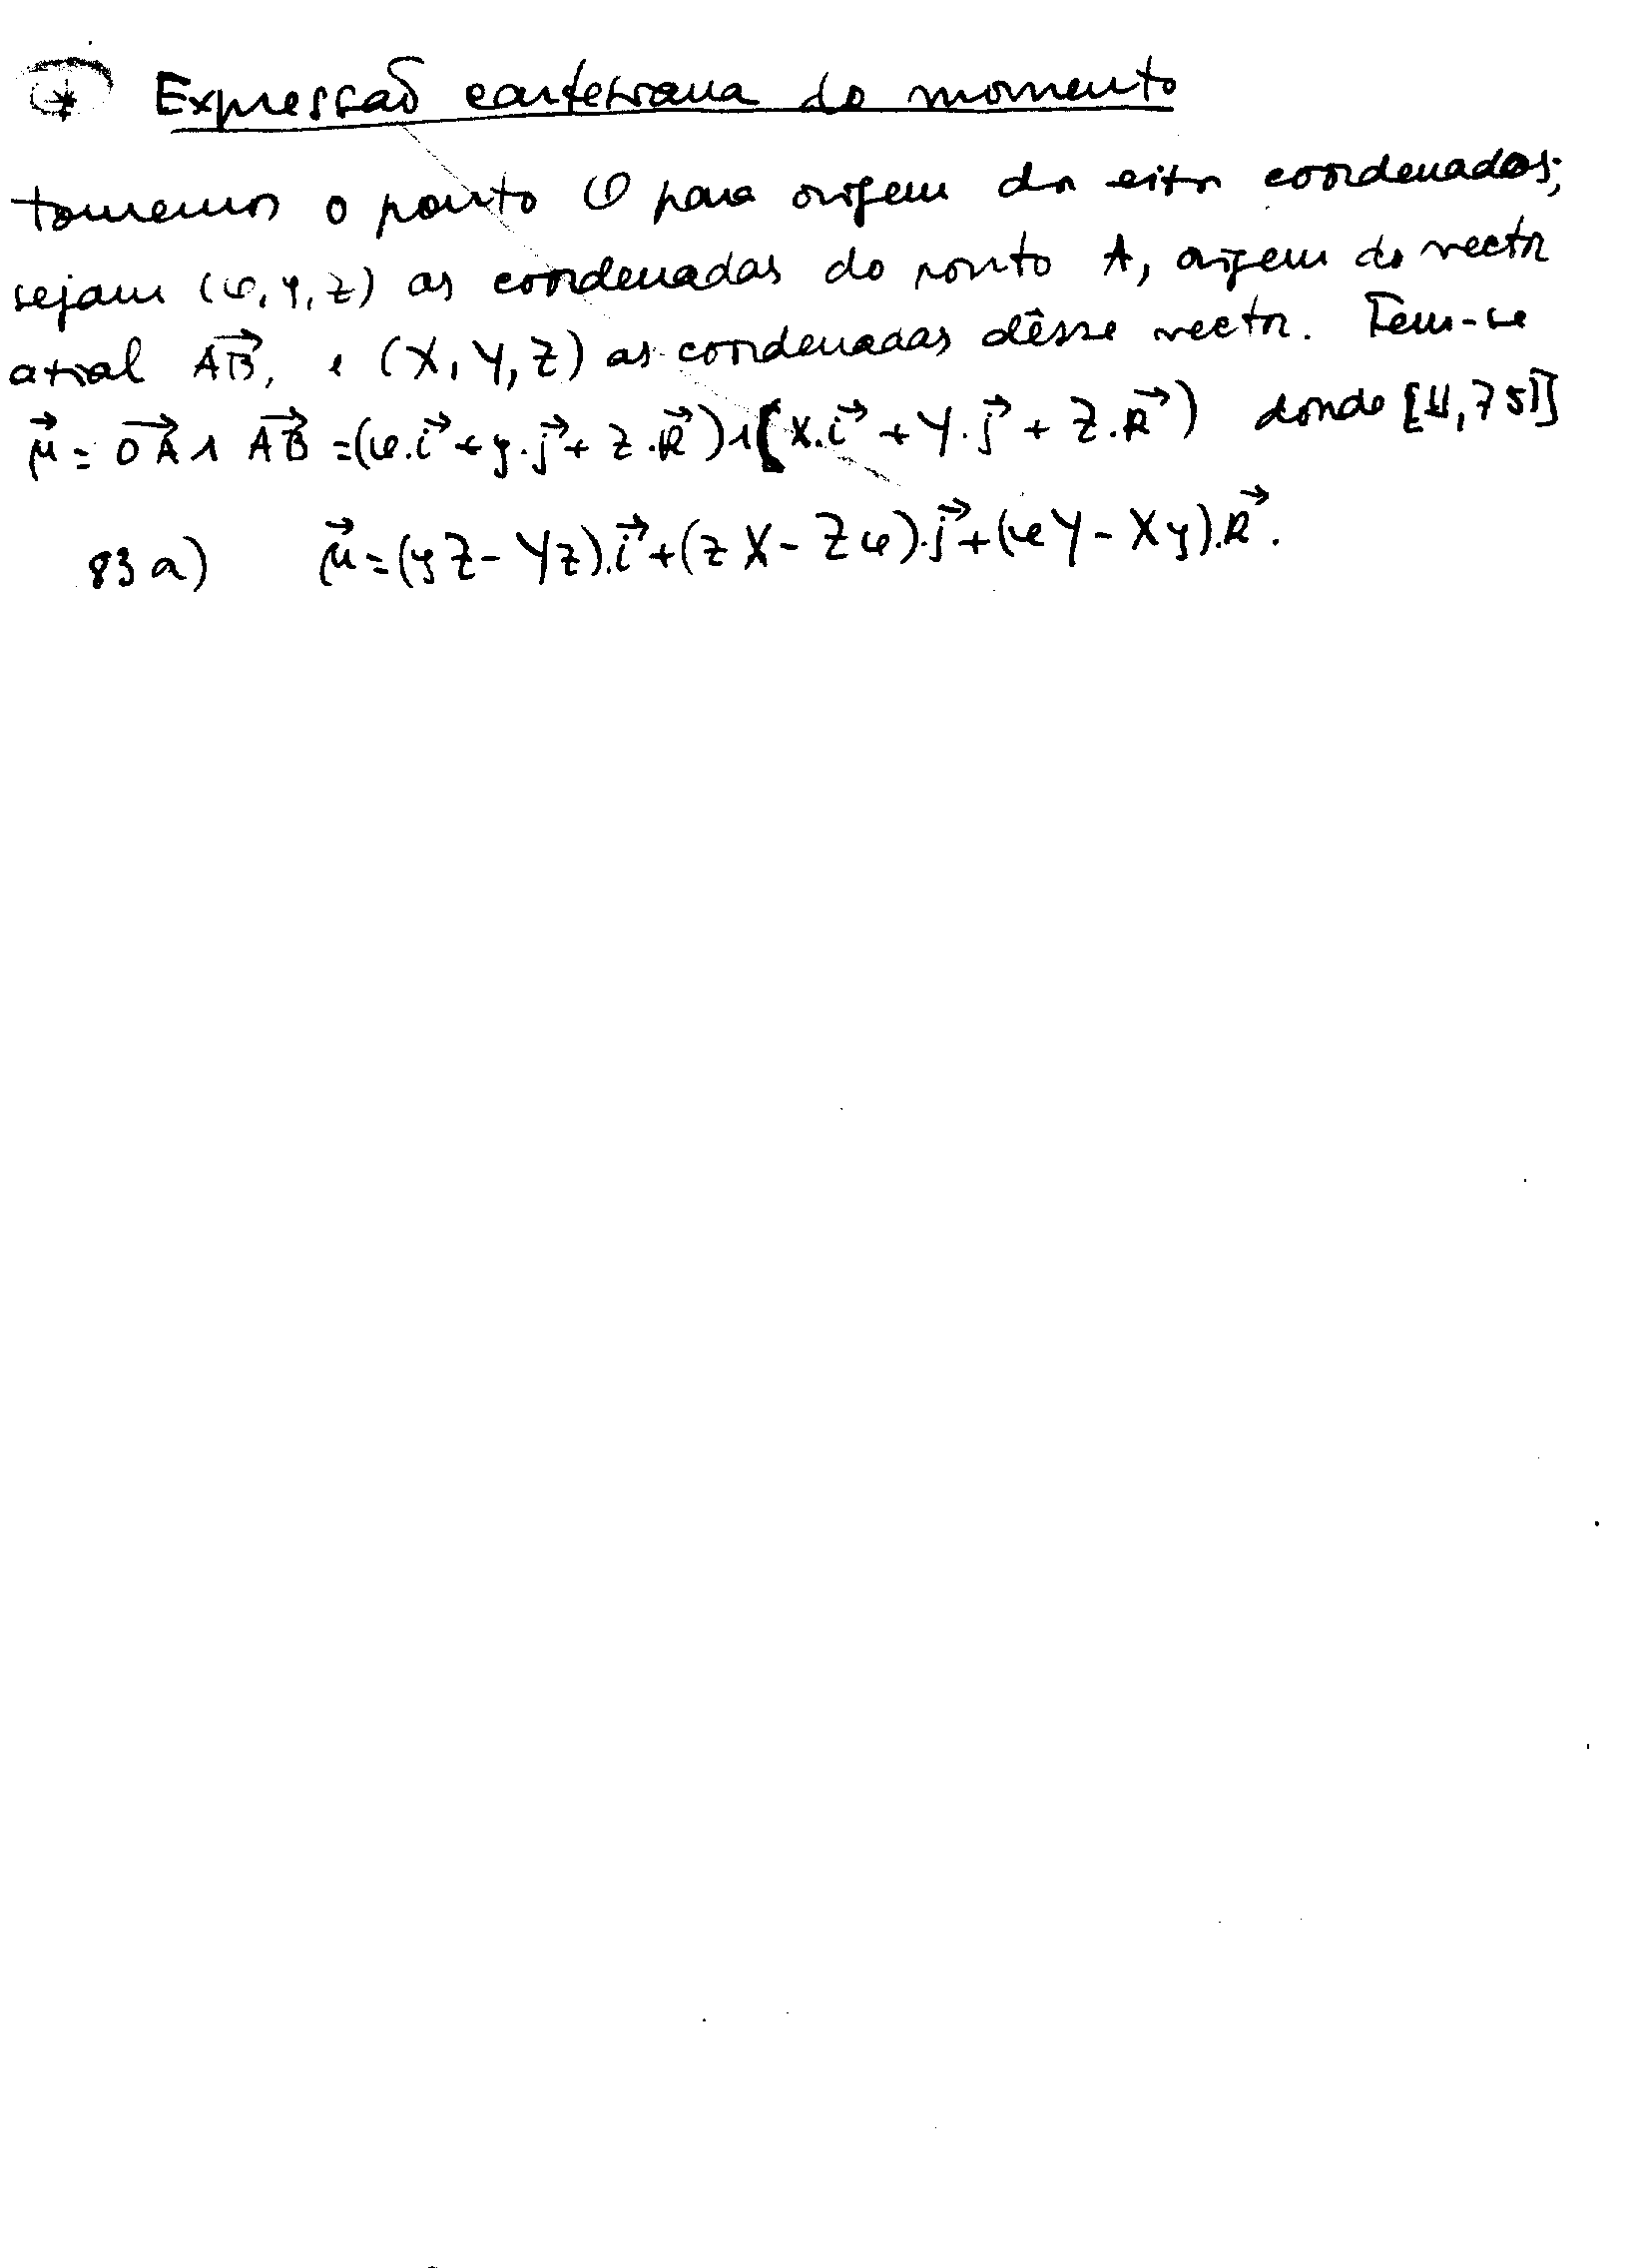 * Expressão cartesiana do momento
tomemos o ponto O para origem dos eixos coordenados;
sejam (x, y, z) as coordenadas do ponto A, origem do vector
axial \vec{AB}, e (X, Y, Z) as coordenadas dêsse vector. Tem-se
\vec{μ} = \vec{OA} ∧ \vec{AB} = (x.\vec{i} + y.\vec{j} + z.\vec{k}) ∧ (X.\vec{i} + Y.\vec{j} + Z.\vec{k}) donde [11,75]
83 a) \vec{μ} = (yZ - Yz).\vec{i} + (zX - Zx).\vec{j} + (xY - Xy).\vec{k}.